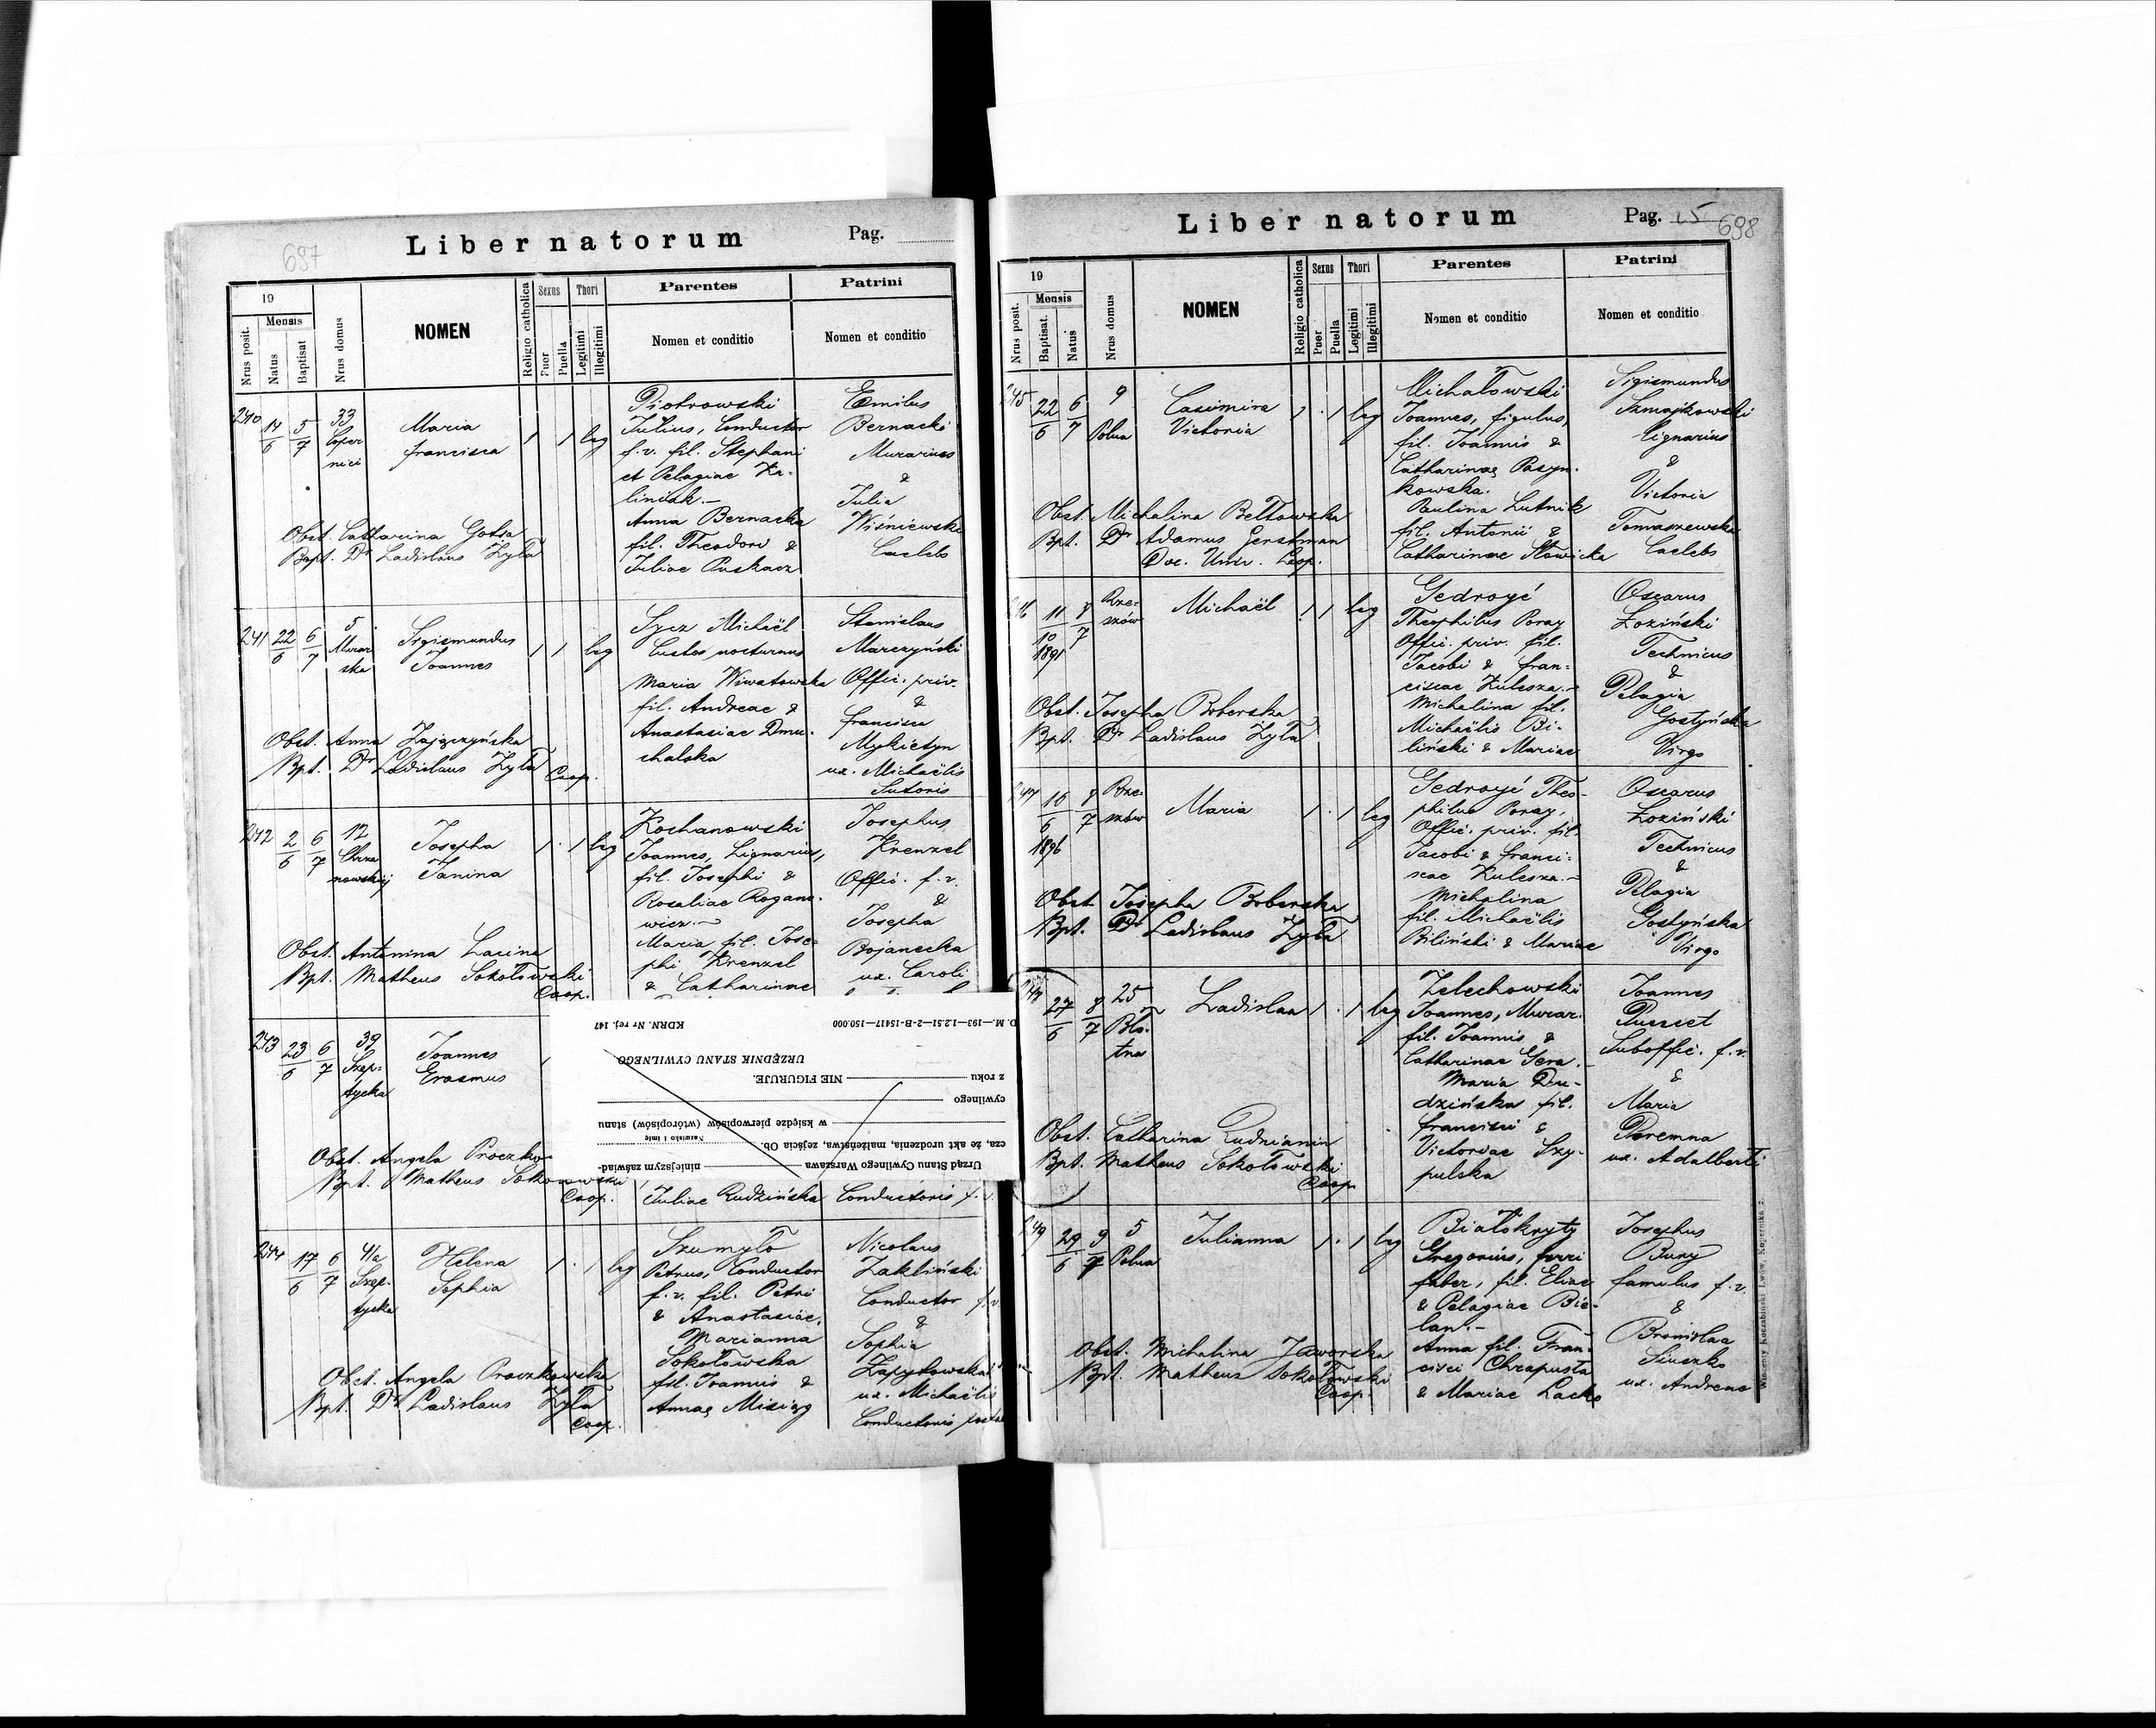 697
Liber natorum
Pag.
19
Mensis
Nrus posit.
Natus
Baptisat
Nrus domus
NOMEN
Religio catholica
Sexus
Puer
Puella
Thori
Legitimi
Illegitimi
Parentes
Nomen et conditio
Patrini
Nomen et conditio
240 17/6 5/7 33 Maria Francisca 1 1 leg
Piotrowski
Julius, Conductor
f.v. fil. Stephani
et Pelagiae Ka-
linciak.—
Anna Bernacka
fil. Theodori &
Juliae Puskarz
Emilus
Bernacki
Murarius
&
Julia
Wiśniewska
Caelebs
Obst. Catharina Gotra
Bapt. Dr Ladislaus Zyła
241 22/6 6/7 5 Murar
ska
Sigismundus
Joannes
1 1 leg
Sycz Michaël
Custos nocturnus
Maria Wiwatowska
fil. Andreae &
Anastasiae Dmu-
chalska
Stanislaus
Marczyński
Offic. priv.
&
Francisca
Mykietyn
ux. Michaëlis
Sutoris
Obst. Anna Zajączyńska
Bpt. Dr Ladislaus Zyła Coop.
242 2/6 6/7 12
Chrza
nowskiej
Josepha
Janina
1 1 leg
Kochanowski
Joannes, Lignarius,
fil. Josephi &
Rosaliae Rogano-
wicz.—
Maria fil. Jose-
phi Krenzel
& Catharinae
Josephus
Krenzel
Offic. f.v.
&
Josepha
Bojanecka
ux. Caroli
Obst. Antonina Lacina
Bpt. Matheus Sokołowski
Coop.
243 23/6 6/7 39
Szep-
tycka
Joannes
Erasmus
Obst. Angela Proczko
Bpt. Matheus Sokołowski
Coop.
Juliae Rudzińska
Conductoris f.v.
D. M.—193—1.2.51—2-B-15417—150.000
KDRN. Nr rej. 147
URZĘDNIK STANU CYWILNEGO
z roku NIE FIGURUJE.
cywilnego
w księdze pierwopisów (wtóropisów) stanu
Nazwisko i imię
cza, że akt urodzenia, małżeństwa, zejścia Ob.
Urząd Stanu Cywilnego Warszawa niniejszym zaświad-
244 17/6 6/7 41a
Szep-
tycka
Helena
Sophia
1 1 leg
Szumyło
Petrus, Conductor
f.v. fil. Petri
& Anastasiae.
Marianna
Sokołowska
fil. Joannis &
Annae Misiąg
Nicolaus
Zakliński
Conductor f.v.
&
Sophia
Zapytowska
ux. Michaëlis
Conductoris
Obst. Angela Proczkowska
Bpt. Dr Ladislaus Zyła
Coop.
Liber natorum
Pag. 15
698
19
Mensis
Nrus posit.
Baptisat.
Natus
Nrus domus
NOMEN
Religio catholica
Sexus
Puer
Puella
Thori
Legitimi
Illegitimi
Parentes
Nomen et conditio
Patrini
Nomen et conditio
245 22/6 6/7 9
Polna
Casimira
Victoria
1 1 leg
Michałowski
Joannes, figulus,
fil. Joannis &
Catharinae Paszyn-
kowska.
Paulina Lutnik
fil. Antonii &
Catharinae Sławicka
Sigismundus
Szmajkowski
lignarius
&
Victoria
Tomaszewska
Caelebs
Obst. Michalina Bełtowska
Bpt. Dr Adamus Gerstman
Doc. Univ. Leop.
246 11/10 8/7
1891
Rze-
szów
Michaël
1 1 leg
Gedroyć
Theophilus Poray
Offic. priv. fil.
Jacobi & Fran-
ciscae Kulesza.—
Michalina fil.
Michaëlis Bi-
liński & Mariae
Oscarus
Łoziński
Technicus
&
Pelagia
Gostyńska
Virgo
Obst. Josepha Boberska
Bpt. Dr Ladislaus Zyła
247 16/6 8/7
1896
Rze-
szów
Maria
1 1 leg
Gedroyć Theo-
philus Poray,
Offic. priv. fil.
Jacobi & Franci-
scae Kulesza.—
Michalina
fil. Michaëlis
Biliński & Mariae
Oscarus
Łoziński
Technicus
&
Pelagia
Gostyńska
Virgo
Obst. Josepha Boberska
Bpt. Dr Ladislaus Zyła
27/6 8/7 25
Bło-
tna
Ladislaa
1 1 leg
Zelechowski
Joannes, Murar.
fil. Joannis &
Catharinae Gera.—
Maria Du-
dzińska fil.
Francisci &
Victoriae Szy-
pulska
Joannes
Pusset
Suboffic. f.v.
&
Maria
Poremna
ux. Adalberti
Obst. Catharina Rudnianin
Bpt. Matheus Sokołowski
Coop.
249 29/6 9/7 5
Polna
Julianna
1 1 leg
Białokryty
Gregorius, ferri
faber, fil. Eliae
& Pelagiae Bie-
lan.—
Anna fil. Fran-
cisci Chrapusta
& Mariae Lacko
Josephus
Bury
famulus f.v.
&
Bronislaa
Siuszko
ux. Andreae
Obst. Michalina Jaworska
Bpt. Matheus Sokołowski
Coop.
Wincenty Kuczabiński Lwów, Kopernika 2.